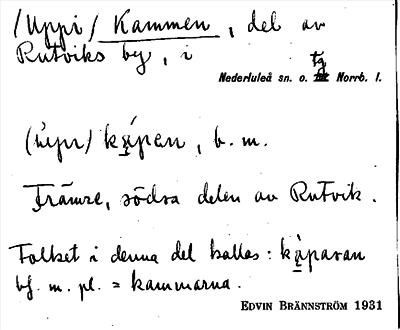 (Uppi) Kammen, del av
Rutviks by, i
Nederluleå sn. o. tg Norrb. l.
b. m.
Främre, södra delen av Rutvik.
Folket i denna del kallas:
bf. m. pl. = kammarna.
EDVIN BRÄNNSTRÖM 1931